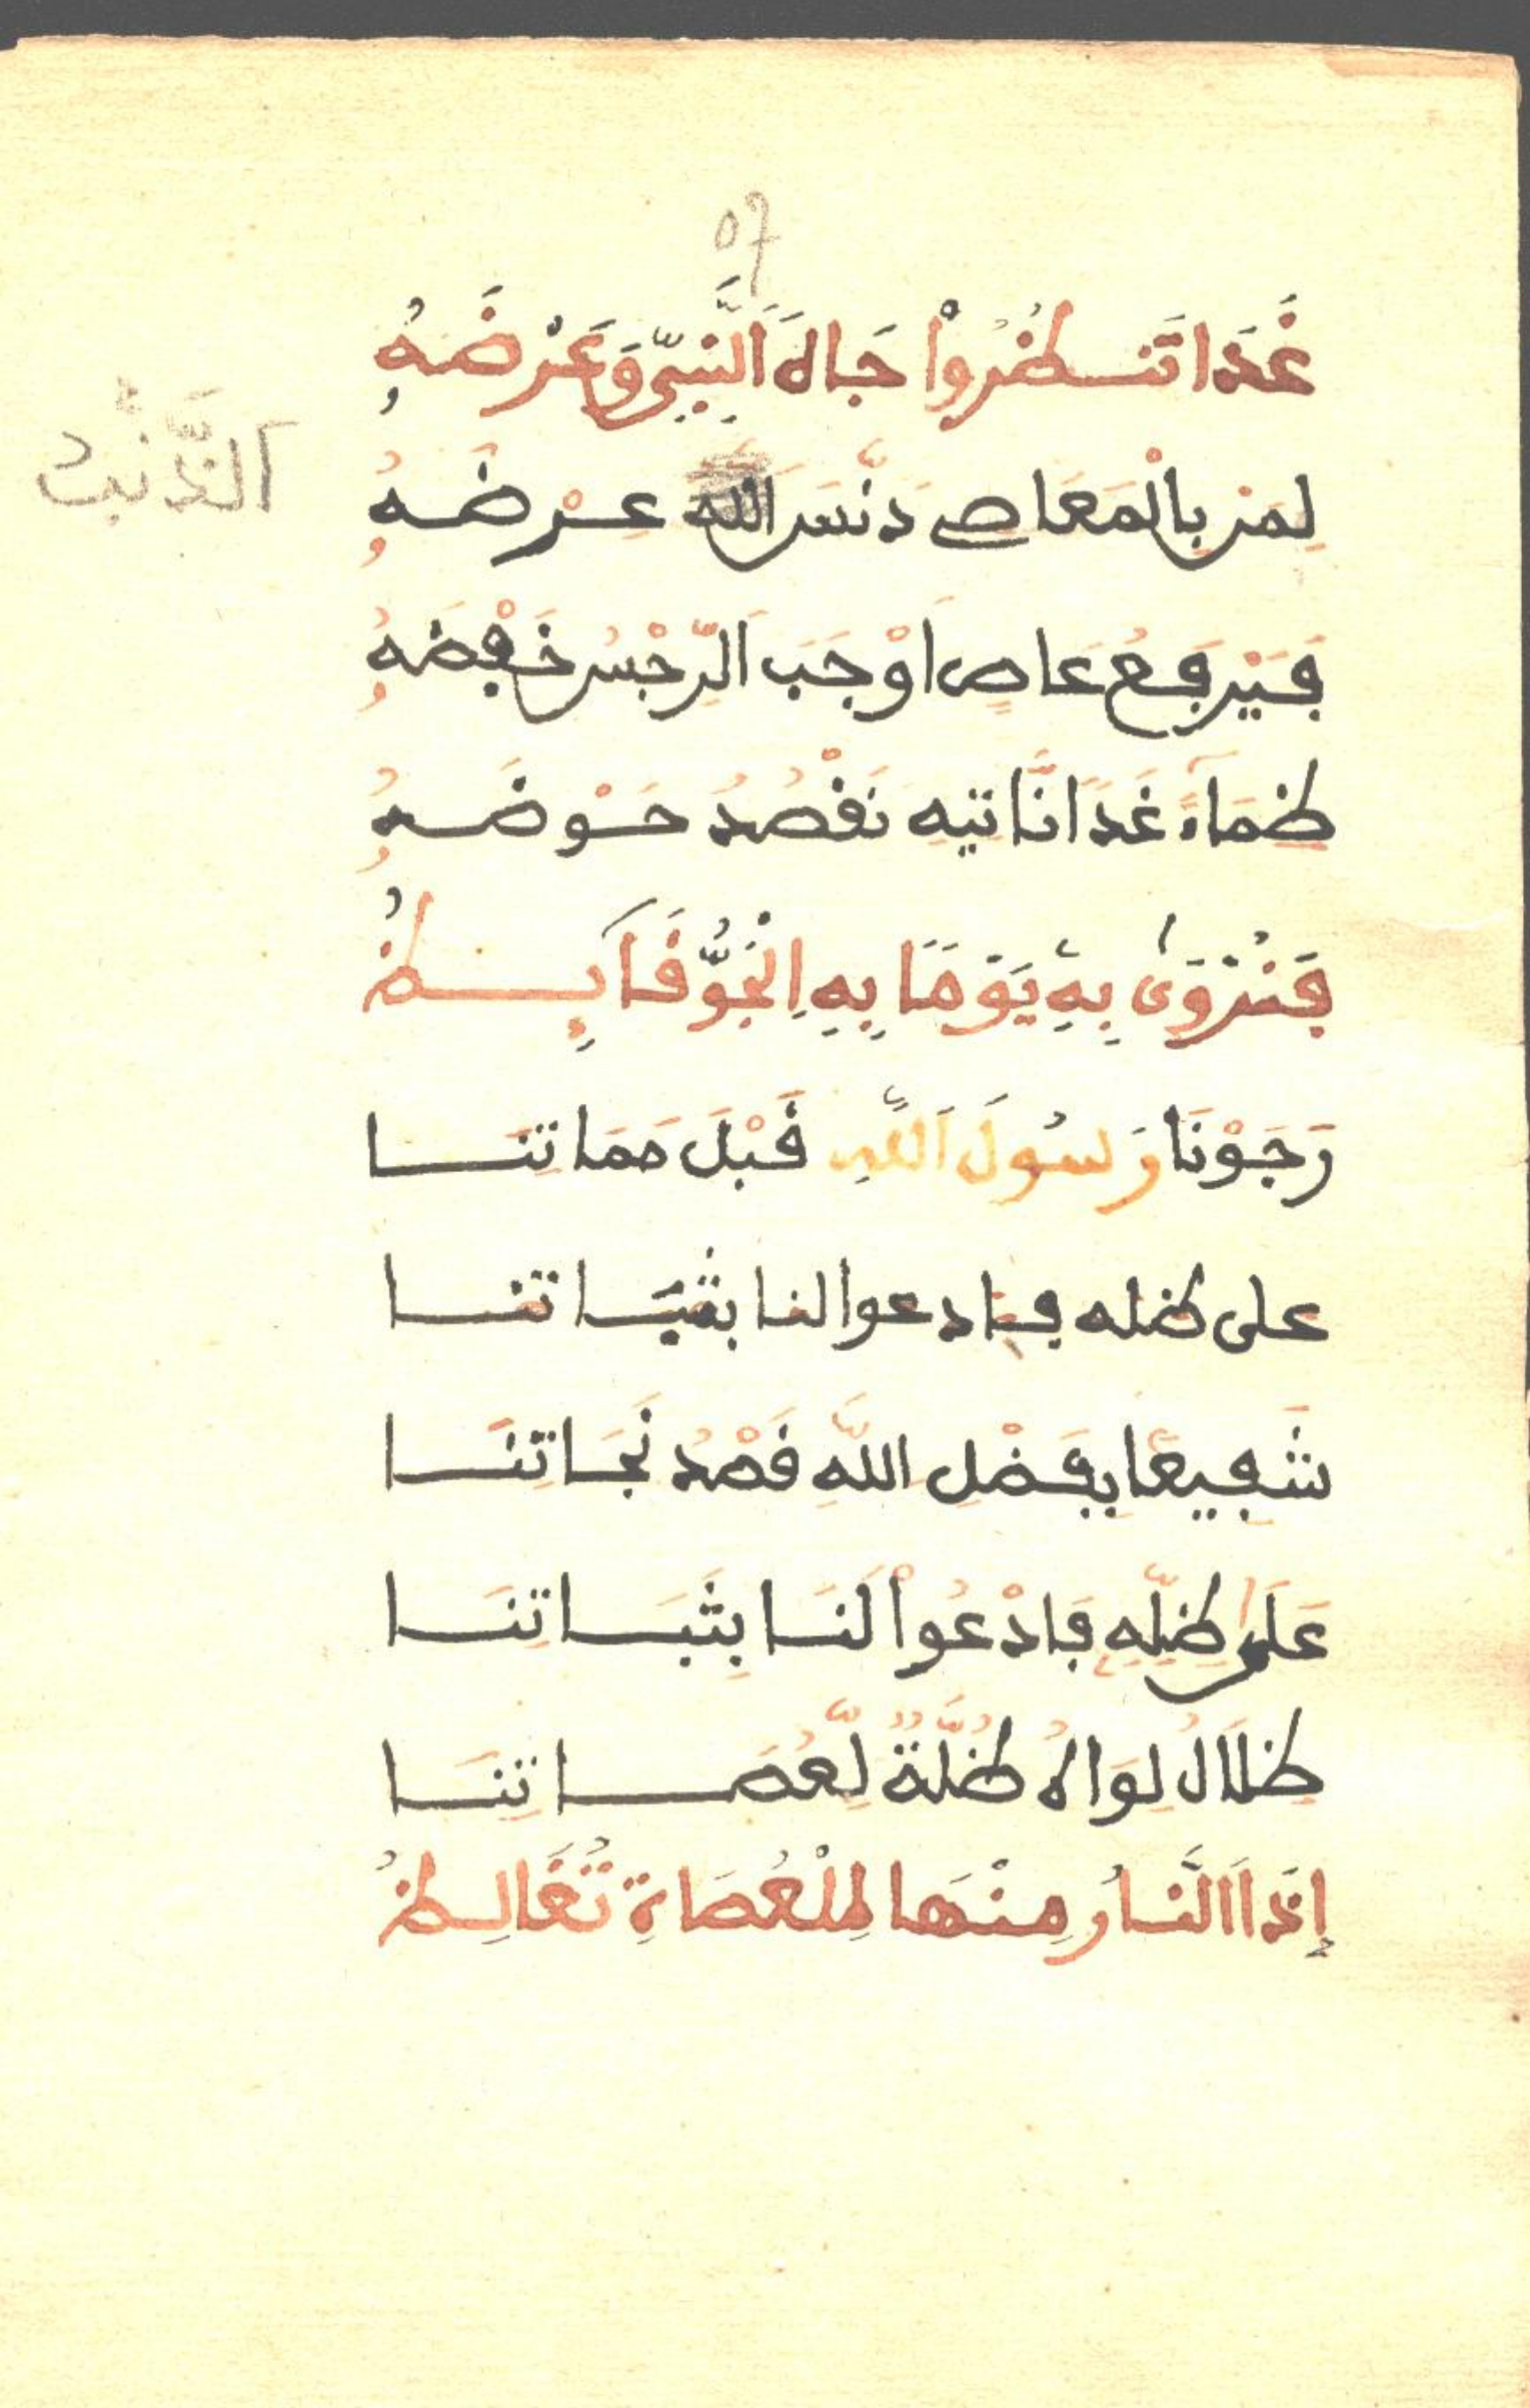 57
غَدًا تَنظُرُواْ جَاهَ اَلنَّبِيِّ وَعَرْضَهُ
اَلذَّنْبُ
لِمَنْ بِالْمَعَاصِي دَنَّسَ الله عِرْضَهُ
فَيَرْفَعُ عَاصٍ اَوْجَبَ الرِّجْسُ خَفْضَهُ
ظِمَآءً غَدًا نَّاتِيهِ نَقْصُدُ حَوْضَهُ
فَنُرْوَىٰ بِهِ يَوْمًا بِهِ اِلْجَوُّ قَآئِظُ
رَجَوْنَا رَسُولَ اَللَّهِ قَبْلَ مَمَاتِنَا
على ظله فادعوا لنا بثباتنا
شَفِيعًا بِفَضْلِ اللَّهِ قَصْدُ نَجَاتِنَا
عَلَىٰ ظِلِّهِ فَادْعُواْ لَنَا بِثَبَاتِنَا
ظِلَالُ لِوَاهُ ظُلَّةٌ لِّعُصَاتِنَا
إِذَا اَلنَّارُ مِنْهَا لِلْعُصَاةِ تُغَالِظُ